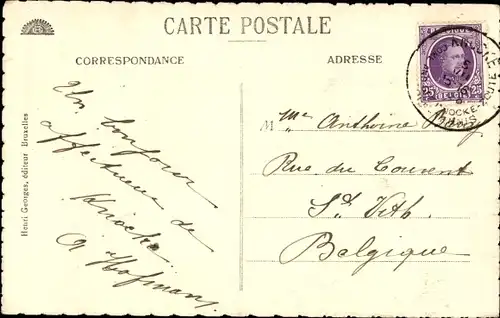 CARTE POSTALE
CORRESPONDANCE
ADRESSE
Un bonjour
affectueux de
Knocke
A Hofman
M me Anthoine
Rue du Couvent
St. Vith.
Belgique
25 BELGIË 25
KNOCKE
KNOCKE
Henri Georges, éditeur Bruxelles